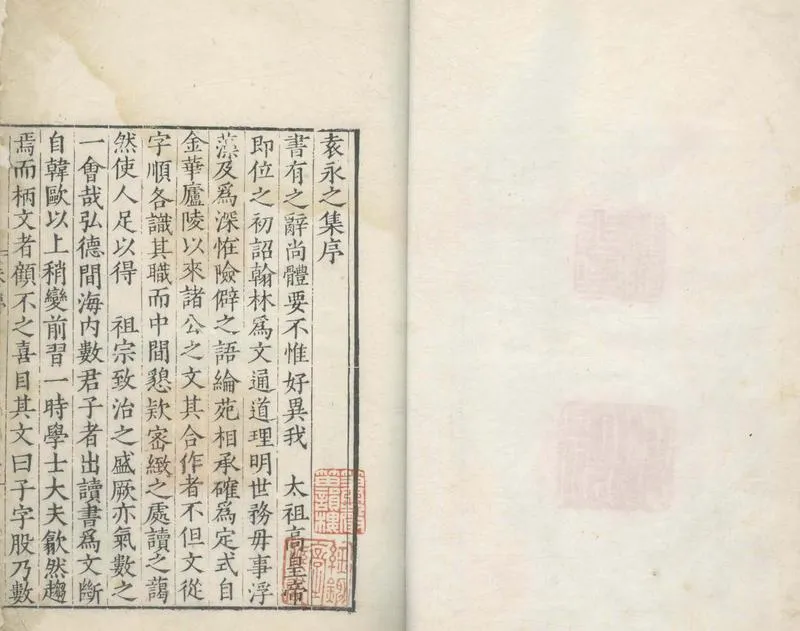 袁永之集序
書有之辭尚體要不惟好異我　太祖高皇帝
即位之初詔翰林爲文通道理明世務毋事浮
藻及爲深恠險僻之語綸苑相承確爲定式自
金華廬陵以來諸公之文其合作者不但文從
字順各識其職而中間懇欵宻緻之處讀之藹
然使人足以得　祖宗致治之盛厥亦氣數之
一會哉弘德間海内數君子者出讀書爲文斷
自韓歐以上稍變前習一時學士大夫歙然趨
焉而柄文者顧不之喜目其文曰子字股乃數